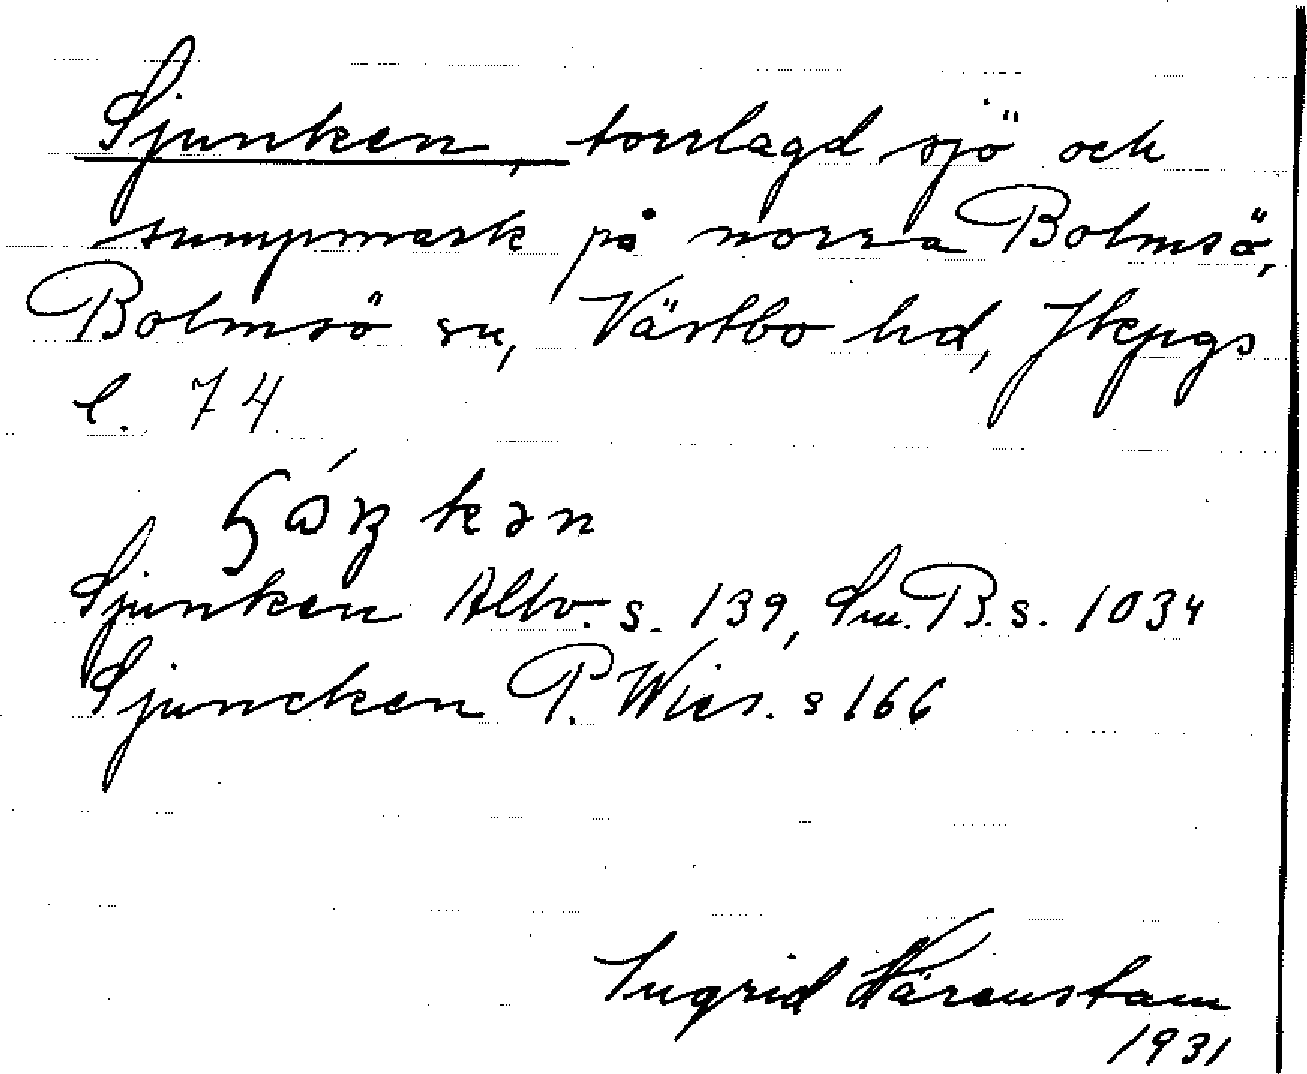 Sjunken, torrlagd sjö och
sumpmark på norra Bolmsö,
Bolmsö sn, Västbo hd, Jkpgs
l. 74
Sjunken Allbo. s. 139, Sm. B. s. 1034
Sjuncken P. Wies. s 166
Ingrid Härenstam
1931